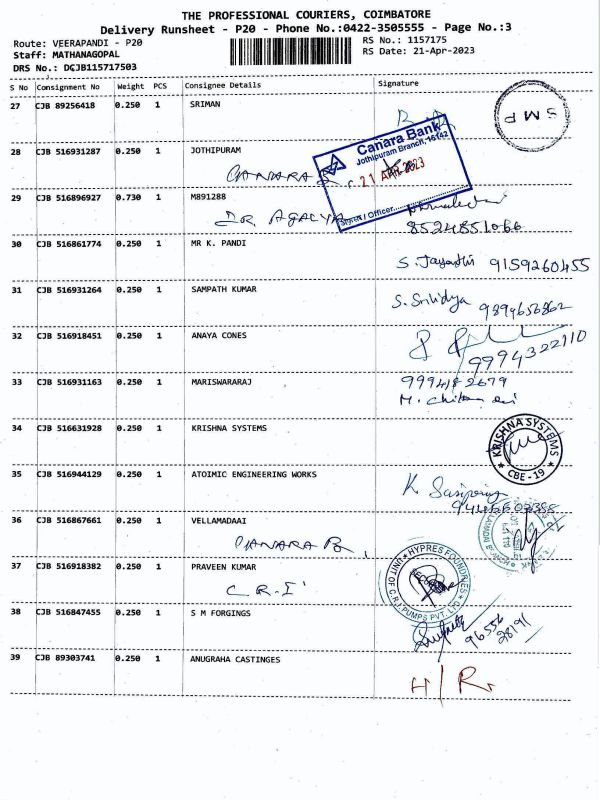 THE PROFESSIONAL COURIERS, COIMBATORE
Delivery Runsheet - P20 - Phone No.:0422-3505555 - Page No.:3
Route: VEERAPANDI - P20
RS No.: 1157175
Staff: MATHANAGOPAL
RS Date: 21-Apr-2023
DRS No.: DCJB115717503
S No Consignment No Weight PCS Consignee Details Signature
27 CJB 89256418 0.250 1 SRIMAN
SMP
28 CJB 516931287 0.250 1 JOTHIPURAM
CANARA B
Canara Bank
Jothipuram Branch, 16142
21 APR 2023
/ Officer
29 CJB 516896927 0.730 1 M891288
DR AGALYA
8524851066
30 CJB 516861774 0.250 1 MR K. PANDI
S. Jayanthi 9159260455
31 CJB 516931264 0.250 1 SAMPATH KUMAR
S. Srividya 9894656862
32 CJB 516918451 0.250 1 ANAYA CONES
9994322110
33 CJB 516931163 0.250 1 MARISWARARAJ
9994182679
34 CJB 516631928 0.250 1 KRISHNA SYSTEMS
KRISHNA SYSTEMS
CBE - 19
35 CJB 516944129 0.250 1 ATOIMIC ENGINEERING WORKS
36 CJB 516867661 0.250 1 VELLAMADAAI
CANARA B
37 CJB 516918382 0.250 1 PRAVEEN KUMAR
C.R.I
HYPRES FOUNDRIES
UNIT OF C.R.I PUMPS PVT. LTD
38 CJB 516847455 0.250 1 S M FORGINGS
96556
28191
39 CJB 89303741 0.250 1 ANUGRAHA CASTINGES
H/R